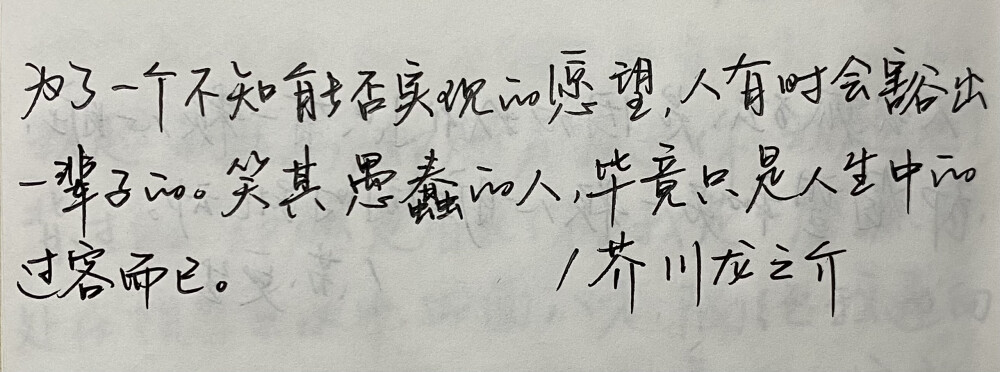 为了一个不知能否实现的愿望,人有时会豁出
一辈子的。笑其愚蠢的人,毕竟只是人生中的
过客而已。 /芥川龙之介